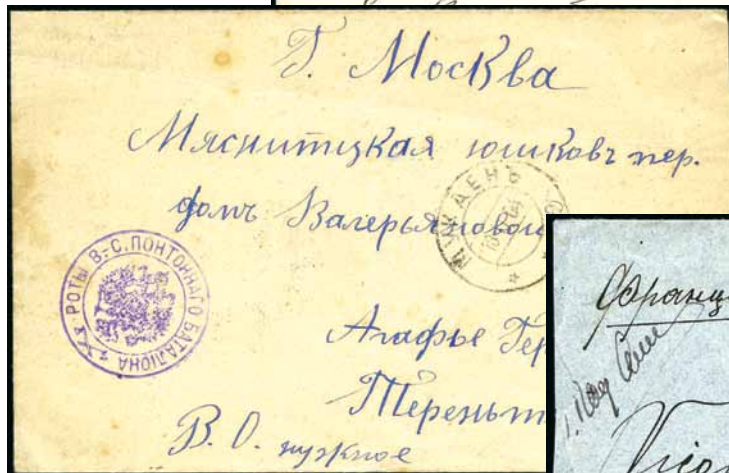 Г. Москва
Мясницкая юшковъ пер.
домъ Валерьяновои
МУКДЕНЪ
РОТЫ В.-С. ПОНТОННАГО БАТАЛІОНА
Агафье Гер
Тереньт
В. О. нужное
Франц